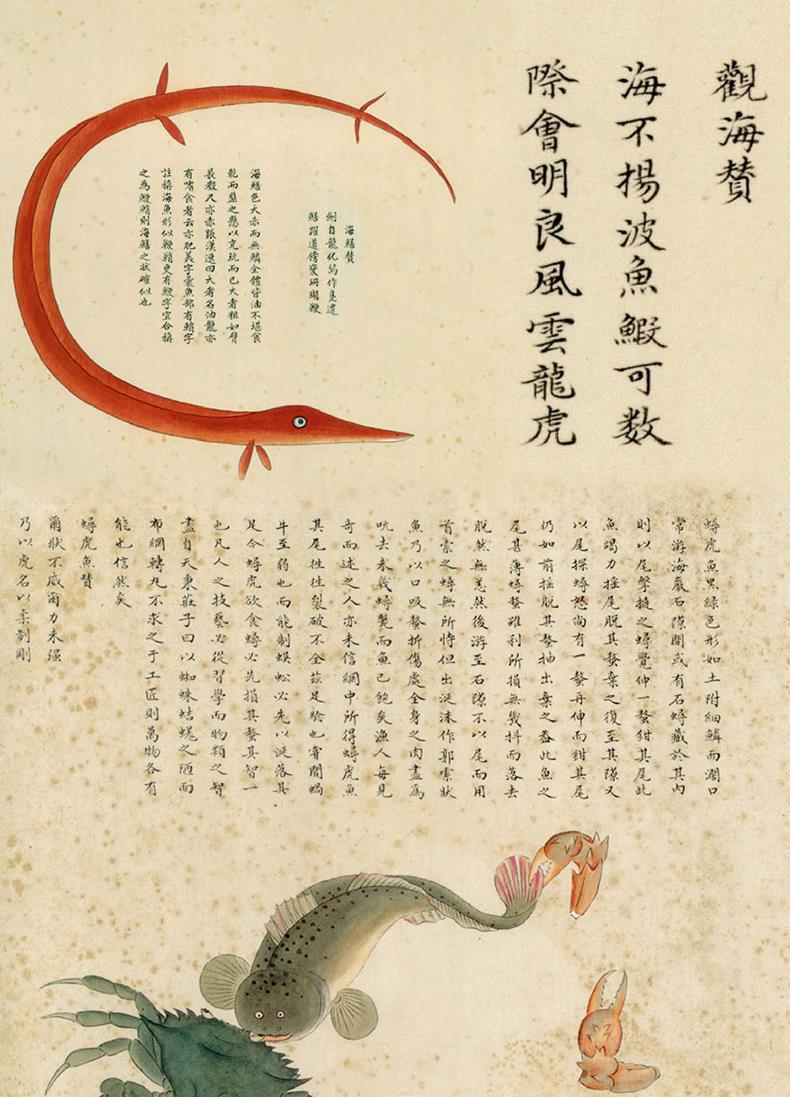 觀海贊
海不揚波魚鰕可数
際會明良風雲龍虎
海鱔贊
劍自龍化鳥作
鱔躍道傍變珊瑚鞭
海鱔色大赤而無鱗全體皆油不堪食
乾而盤之懸以充玩而已大者粗如臂
長數尺亦赤張漢逸曰大者名油龍亦
有啗食者云亦肥美字彙魚部有鞘字
註稱海魚形似鞭鞘更有鞭字宜合稱
之為鞭鞘則海鱔之狀確似也
蟳虎魚黑綠色形如土附細鱗而濶口
常游海巖石隙間或有石蟳藏於其內
則以尾擊撻之蟳覺伸一螯鉗其尾此
魚竭力摇尾脱其螯棄之復至其隙又
以尾探蟳怒尚有一螯再伸而鉗其尾
仍如前摇脱其螯抽出棄之蓋此魚之
尾甚薄蟳螯雖利所損無幾抖而落去
脱然無恙然後游至石隙不以尾而用
首索之蟳無所恃但出涎沫作郭索狀
魚乃以口吸螯折傷處全身之肉盡為
吮去未幾蟳斃而魚已飽矣漁人每見
奇而述之人亦未信網中所得蟳虎魚
其尾徃徃裂破不全茲足驗也嘗聞蝎
牛至弱也而能制蜈蚣必先以涎落其
足今蟳虎欲食蟳必先損其螯其智一
也凡人之技藝必從習學而物類之智
盡自天秉莊子曰以蜘蛛蛣蜣之陋而
布網轉丸不求之于工匠則萬物各有
能也信然矣
蟳虎魚贊
爾狀不威爾力未强
乃以虎名以柔制剛